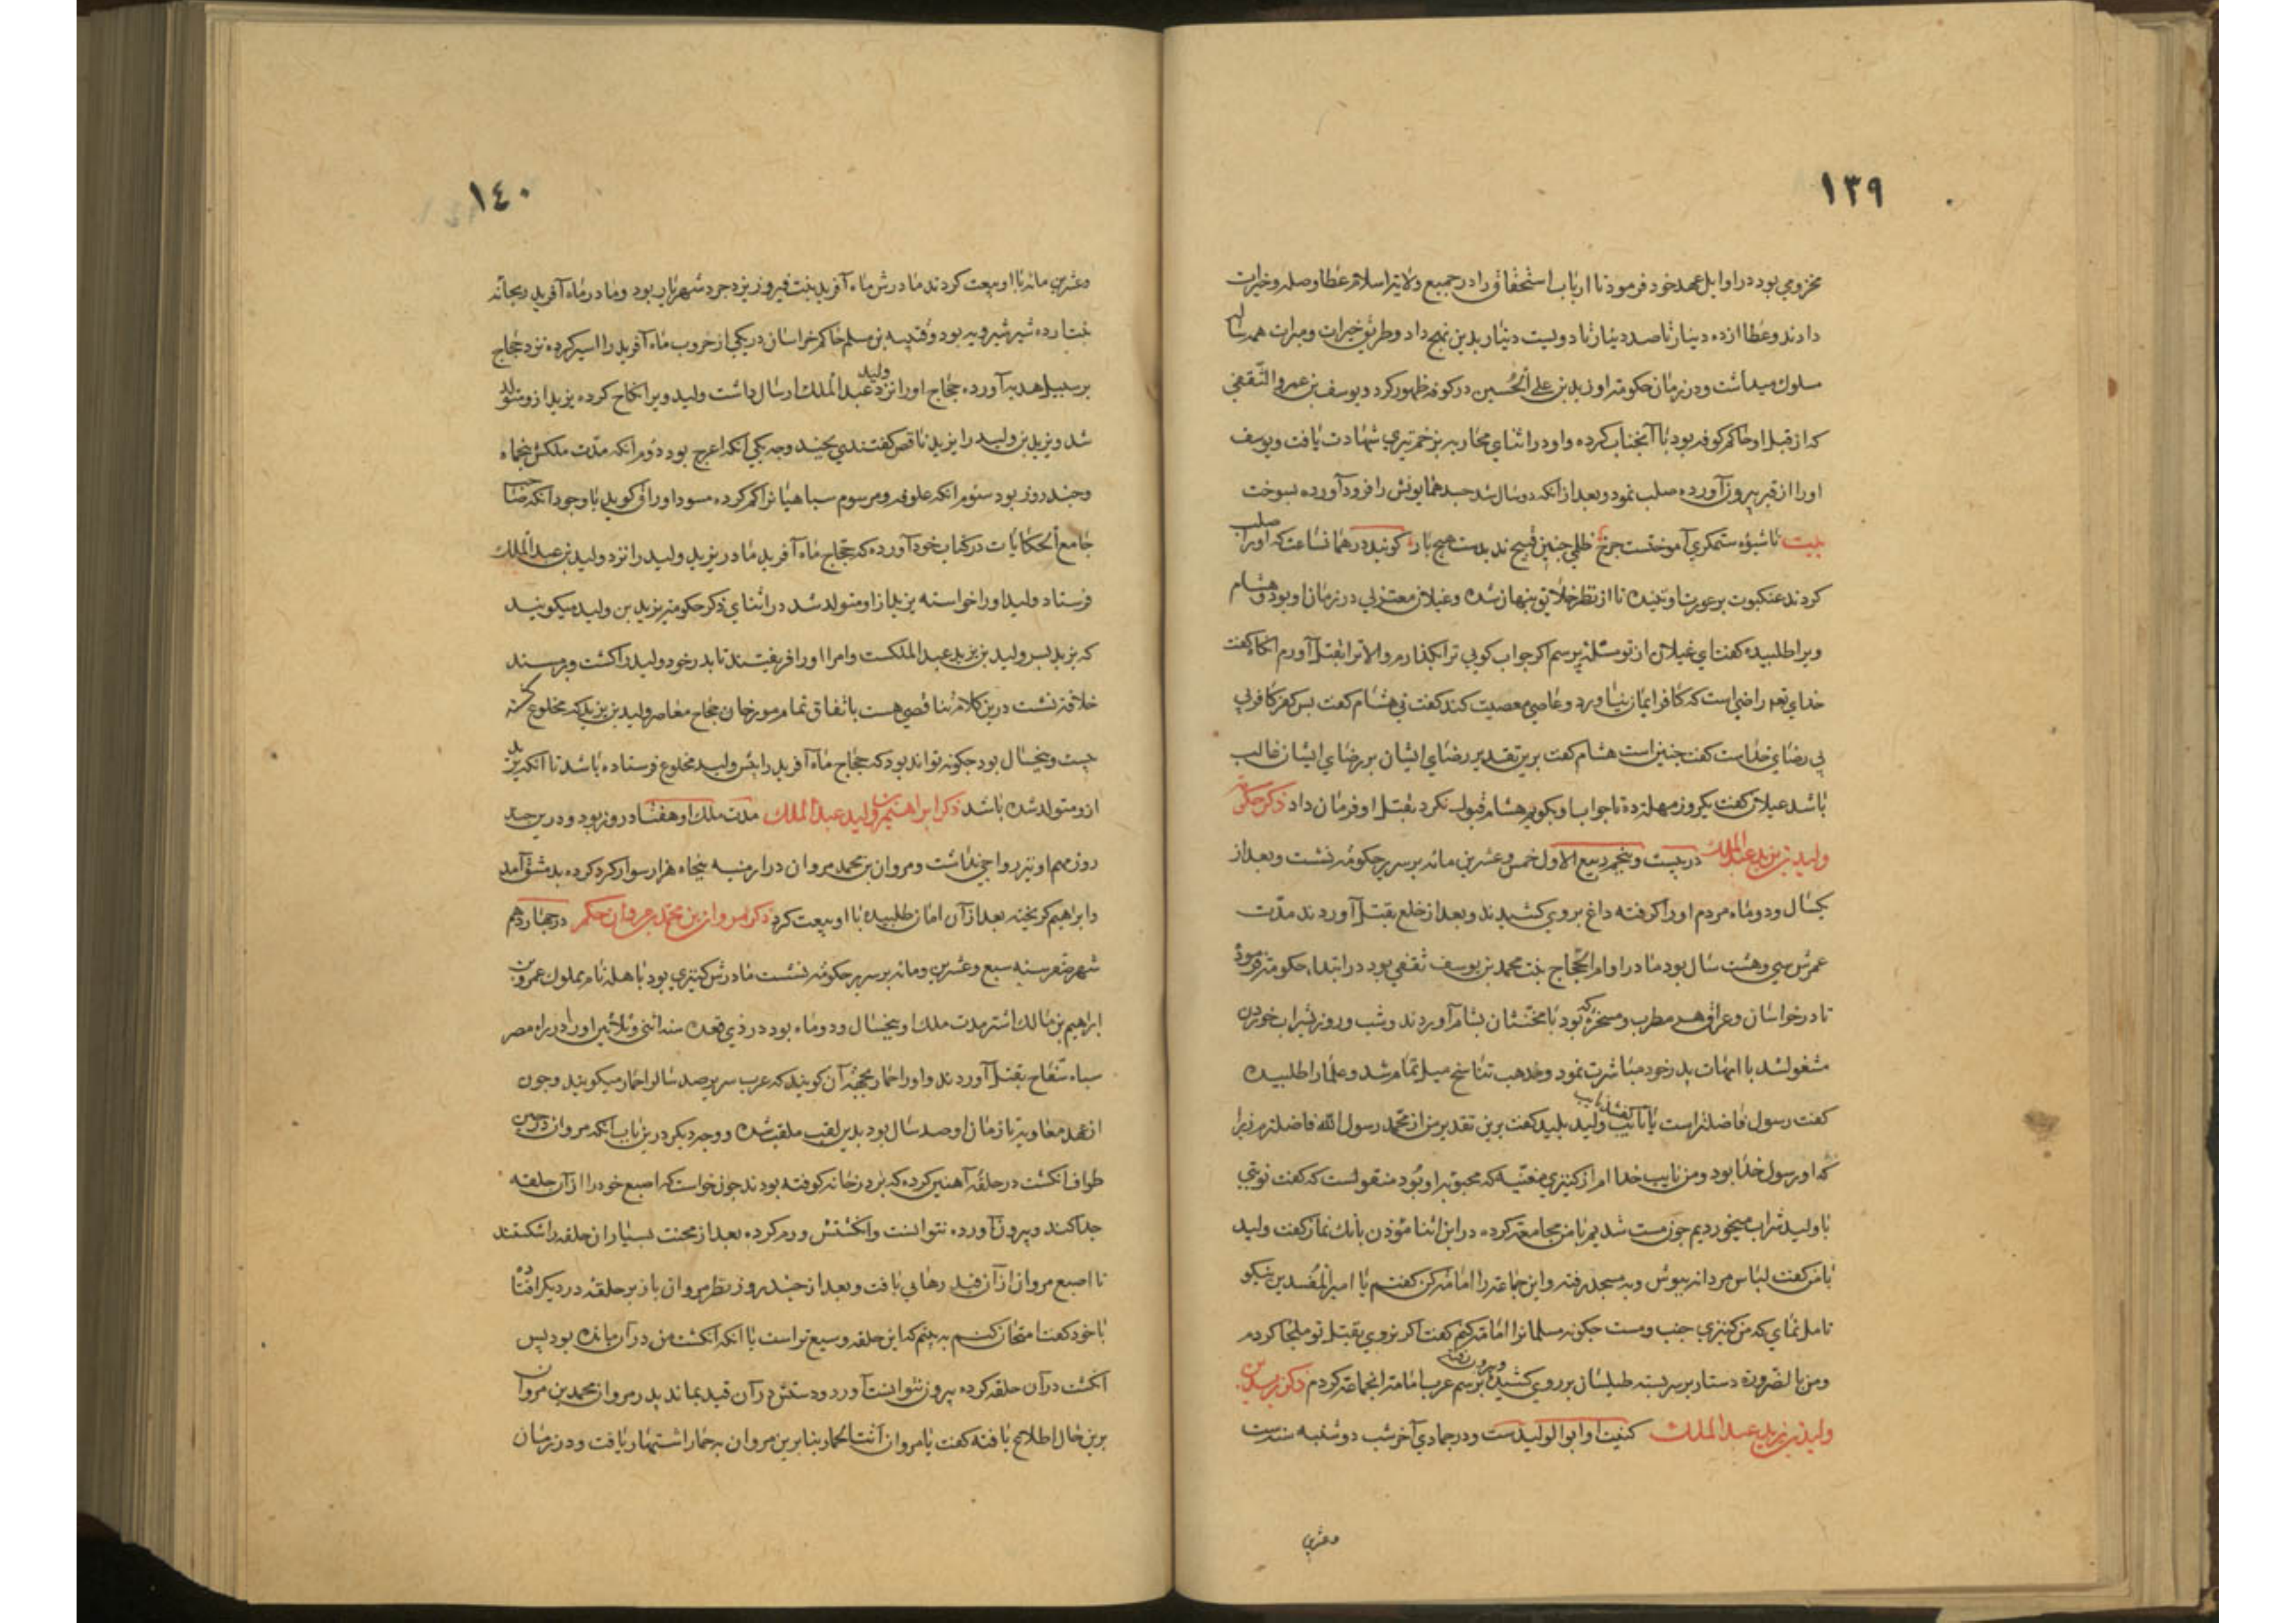 ١٣٩
مخزومي بود در اوايل عهد خود فرمود تا ارباب استحقاق را در جميع ولايت اسلام عطا و صله و خيرات
دادند و عطا از ده دينار تا صد دينار تا دويست دينار بدين نهج داد و طريق خيرات و مبرات همه ساله
سلوك ميداشت و در زمان حكومت او زيد بن علي الحسين در كوفه ظهور كرد و يوسف بن عمرو الثقفي
كه از قبل او حاكم كوفه بود با آنجناب كرده و او در اثناي محاربه بزخم تيري شهادت يافت و يوسف
او را از قبر بيرون آورده صلب نمود و بعد از آنكه دو سال شد جسد همايونش را فرود آورده بسوخت
بيت تا شيوه ستمكري آموختست چرخ ظلمي چنين قبيح نديدست هيچ بار كويند در همان ساعت كه او را صلب
كردند عنكبوت بر عورت او تنيده تا از نظر خلايق پنهان شده و غيلان معتزلي در زمان او بود و هشام
ويرا طلبيده كفت اي غيلان از تو مسئله پرسم اكر جواب كويي ترا بكذارم و الا ترا بقتل آورم انكاه كفت
خداي تعم راضي است كه كافر ايمان نياورد و عاصي معصيت كند كفت ني هشام كفت پس كفر كافر بي
بي رضاي خداست كفت چنين است هشام كفت برين تقدير رضاي ايشان بر رضاي ايشان غالب
باشد غيلان كفت يكروز مهلت ده تا جواب با و بكويم هشام قبول نكرد بقتل او فرمان داد ذكر حكومت
وليد بن يزيد عبد الملك در بيست و پنجم ربيع الاول خمس و عشرين مائه بر سرير حكومه نشست و بعد از
يكسال و دو ماه مردم او را كرفته داغ بر وي كشيدند و بعد از خلع بقتل آوردند مدت
عمرش سي و هشت سال بود مادر او ام الحجاج بنت محمد بن يوسف ثقفي بود در ابتداء حكومت فرمود
تا در خراسان و عراق هر مطرب و مسخره كه بود با مخنثان بشام آوردند و شب و روز بشراب خوردن
مشغول شد با امهات پدر خود مباشرت نمود و بمذهب تناسخ ميل تمام شد و علما را طلبيده
كفت رسول فاضلتر است يا نايب كفتند نايب وليد پليد كفت برين تقدير من از محمد رسول الله فاضلترم زيرا
كه او رسول خدا بود و من نايب خدا ام از كنيزي مغنيه كه محبوبه او بود منقولست كه كفت نوبتي
با وليد شراب ميخورديم چون مست شديم با من مجامعت كرده در اين اثنا مؤذن بانك نماز كفت وليد
با من كفت لباس مردانه بپوش و به مسجد رفته و اين جماعت را امامت كن كفتم يا امير المفسدين نيكو
تامل نماي كه من كنيزي جنب و مست چكونه مسلمانرا امامت كنم كفت اكر نروي بقتل تو ملجا كردم
و من بالضرورة دستار بر سر بسته طيلسان بر روي كشيده و بيرون رفته برسم عرب امامت انجماعت كردم ذكر يزيد بن
وليد بن يزيد عبد الملك كنيت او ابو الوليد ست و در جمادي آخر شب دوشنبه سنه ست
وعشرين
١٤٠
وعشرين مائه با او بيعت كردند مادرش ماه آفريد بنت فيروز يزدجرد شهريار بود و مادر ماه آفريد ريحانه
بنت ارده شير شيرويه بود و قتيبه بن مسلم حاكم خراسان در يكي از حروب ماه آفريد را اسير كرده نزد حجاج
بر سبيل هديه آورده حجاج او را نزد وليد عبد الملك ارسال داشت وليد ويرا نكاح كرده يزيد از و متولد
شد و يزيد بن وليد را يزيد ناقص كفتندي بچند وجه يكي انكه اعرج بود دوم انكه مدت ملكش پنجماه
و چند روز بود سنوم انكه علوفه و مرسوم سپاهيانرا كم كرده مسود اوراق كويد با وجود انكه صاحب
جامع الحكايات در كتاب خود آورده كه حجاج ماه آفريد مادر يزيد وليد را نزد وليد بن عبد الملك
فرستاد وليد او را خواسته يزيد از او متولد شد در اثناي ذكر حكومت يزيد بن وليد ميكويند
كه يزيد پسر وليد بن يزيد عبد الملكست و امرا او را فريفتند تا پدر خود وليد را كشت و بر مسند
خلافة نشست درين كلام تناقضي هست باتفاق تمام مورخان حجاج معاصر وليد بن يزيد كه مخلوع كشته
بيست و پنجسال بود چكونه تواند بود كه حجاج ماه آفريد را پيش وليد مخلوع فرستاده باشد تا آنكه يزيد
از و متولد شده باشد ذكر ابراهيم بن وليد عبد الملك مدت ملك او هفتاد روز بود و درين چند
روز مهم او نيز رواجي نداشت و مروان بن محمد مروان در ارمنيه پنجاه هزار سوار كرد كرده بدمشق آمد
و ابراهيم كريخته بعد از آن امان طلبيده با او بيعت كرد ذكر مروان بن محمد بن مروان حكم در چهاردهم
شهر صفر سنه سبع و عشرين و مائه بر سرير حكومه نشست مادرش كنيزي بود باهله نام مملوك عمرو بن
ابراهيم بن مالك اشتر مدت ملك او پنجسال و دو ماه بود در ذي قعده سنه اثني و ثلاثين او را در راه مصر
سپاه سفاح بقتل آوردند و او را حمار بجهة آن كويند كه عرب سر بر صد سال را حمار ميكويند و چون
از عهد معاويه تا زمان او صد سال بود بدين لقب ملقب شده و وجه ديكر درين باب آنكه مروان در حين
طواف انكشت در حلقه آهنين كرده كه بر در خانه كوفته بودند چون خواست كه اصبع خود را از آن حلقه
جدا كند و بيرون آورده نتوانست و انكشتش ورم كرده بعد از محنت بسيار ان حلقه را شكستند
تا اصبع مروان از آن قيد رهايي يافت و بعد از چند روز نظر مروان باز بر حلقه در ديكر افتاده
با خود كفت امتحان كنم به بينم كه اين حلقه وسيع تر است يا انكه انكشت من در آن مانده بود پس
انكشت در آن حلقه كرده بيرون نتوانست آورد و دستش در آن قيد بماند پدر مروان محمد بن مروان
برين حال اطلاع يافته كفت يا مروان انت الحمار بنابرين مروان به حمار اشتهار يافت و در زمان